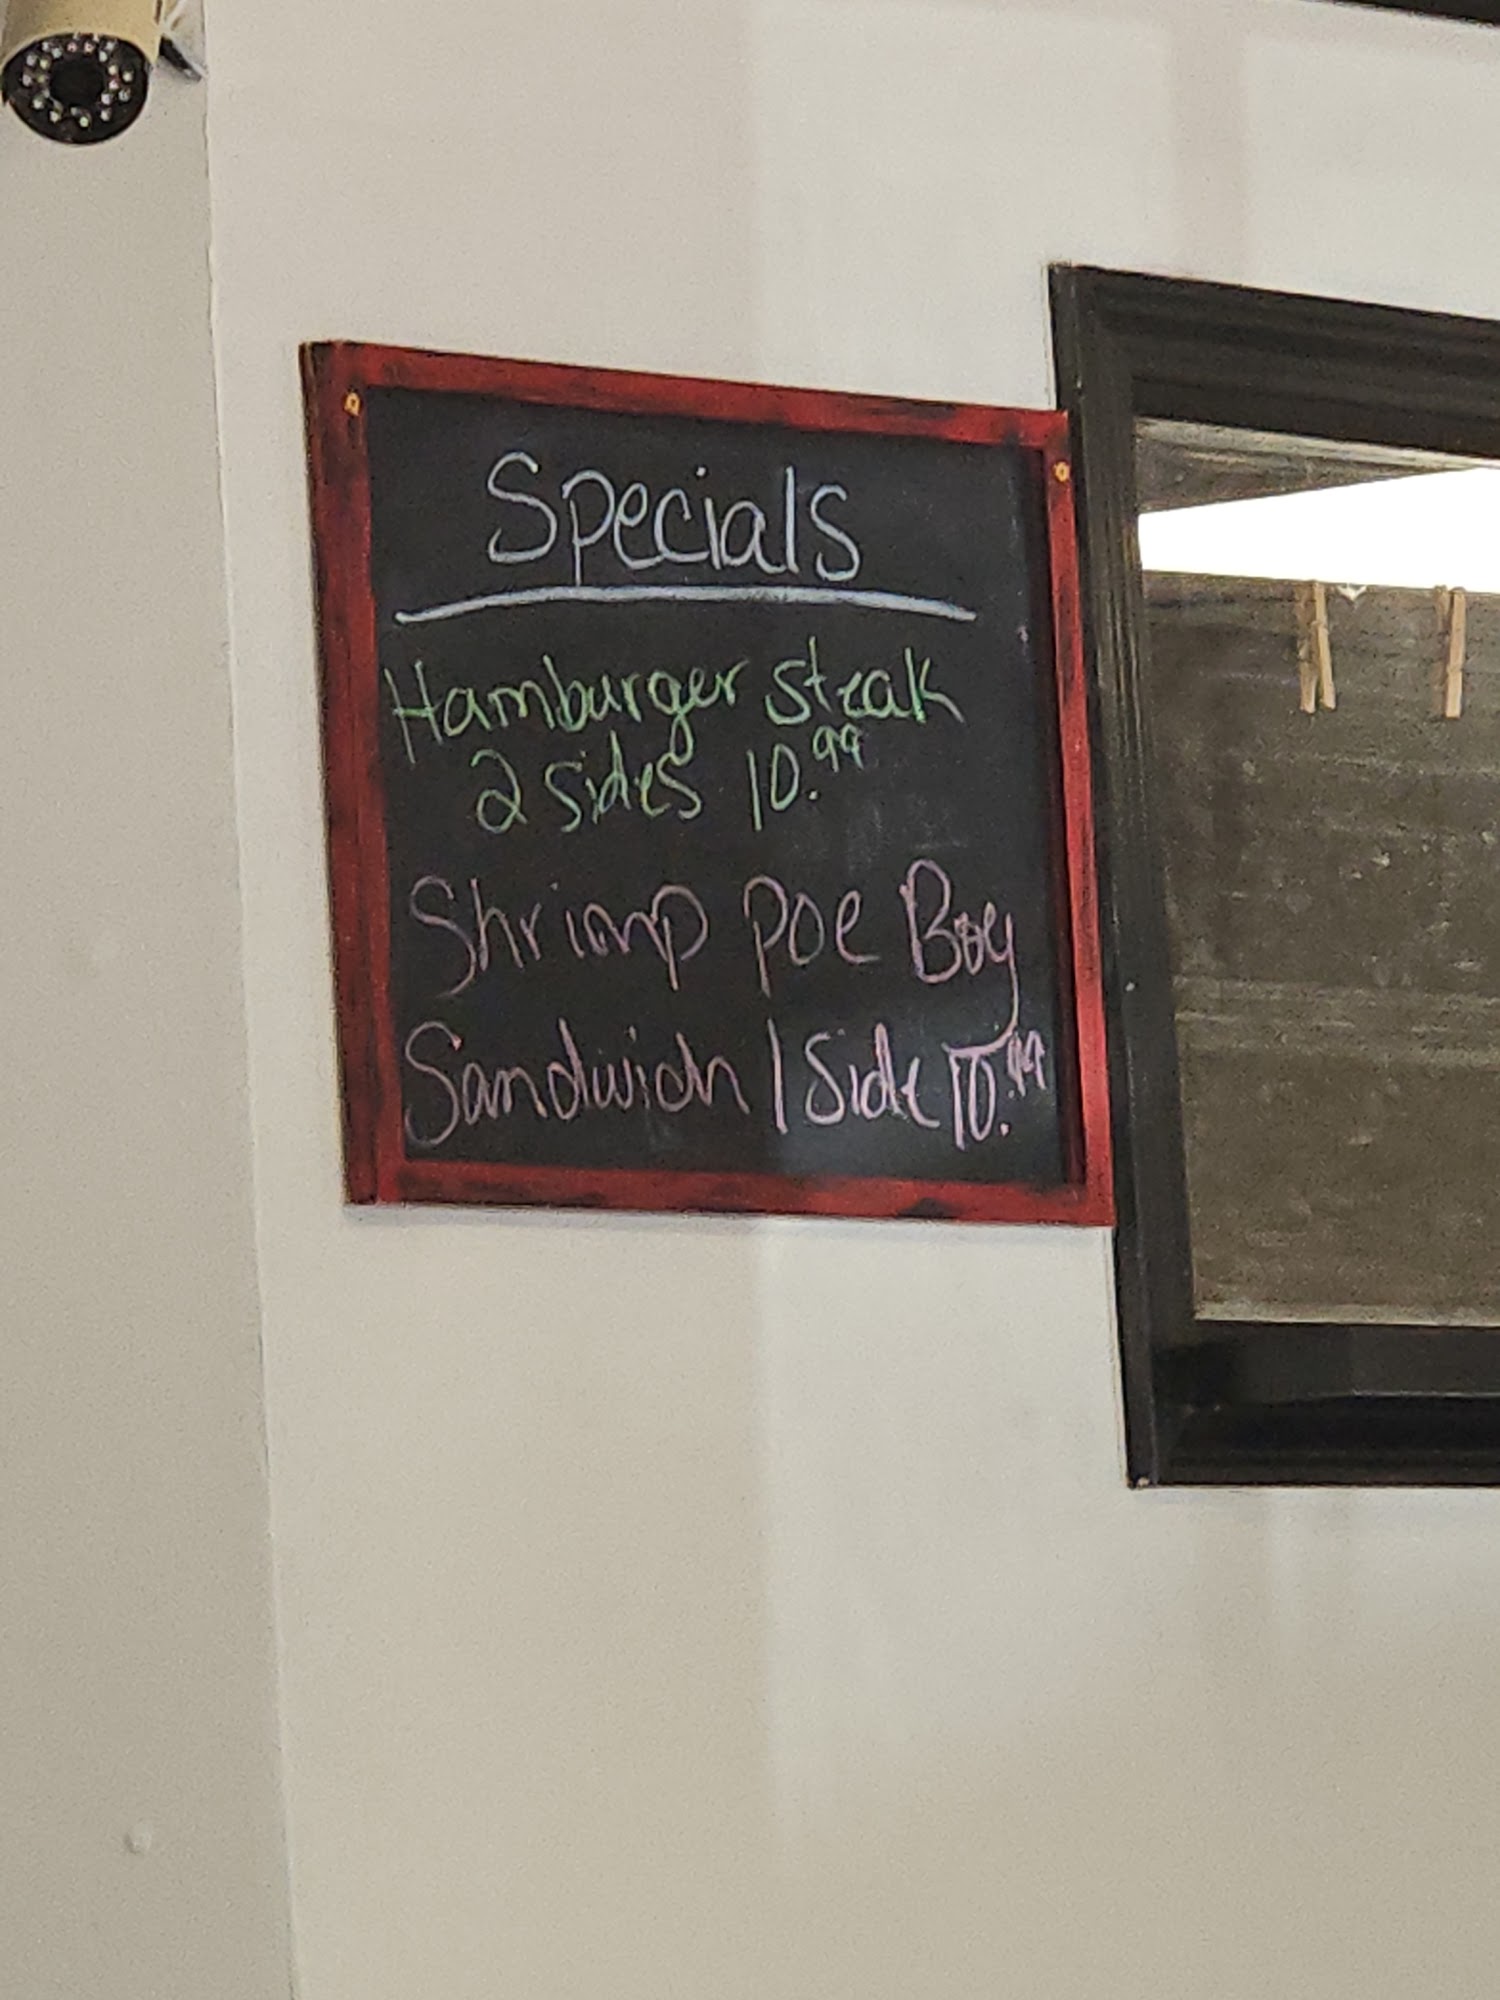 Specials
Hamburger steak
2 sides 10.99
Shrimp Poe Boy
Sandwich 1 Side 10.99